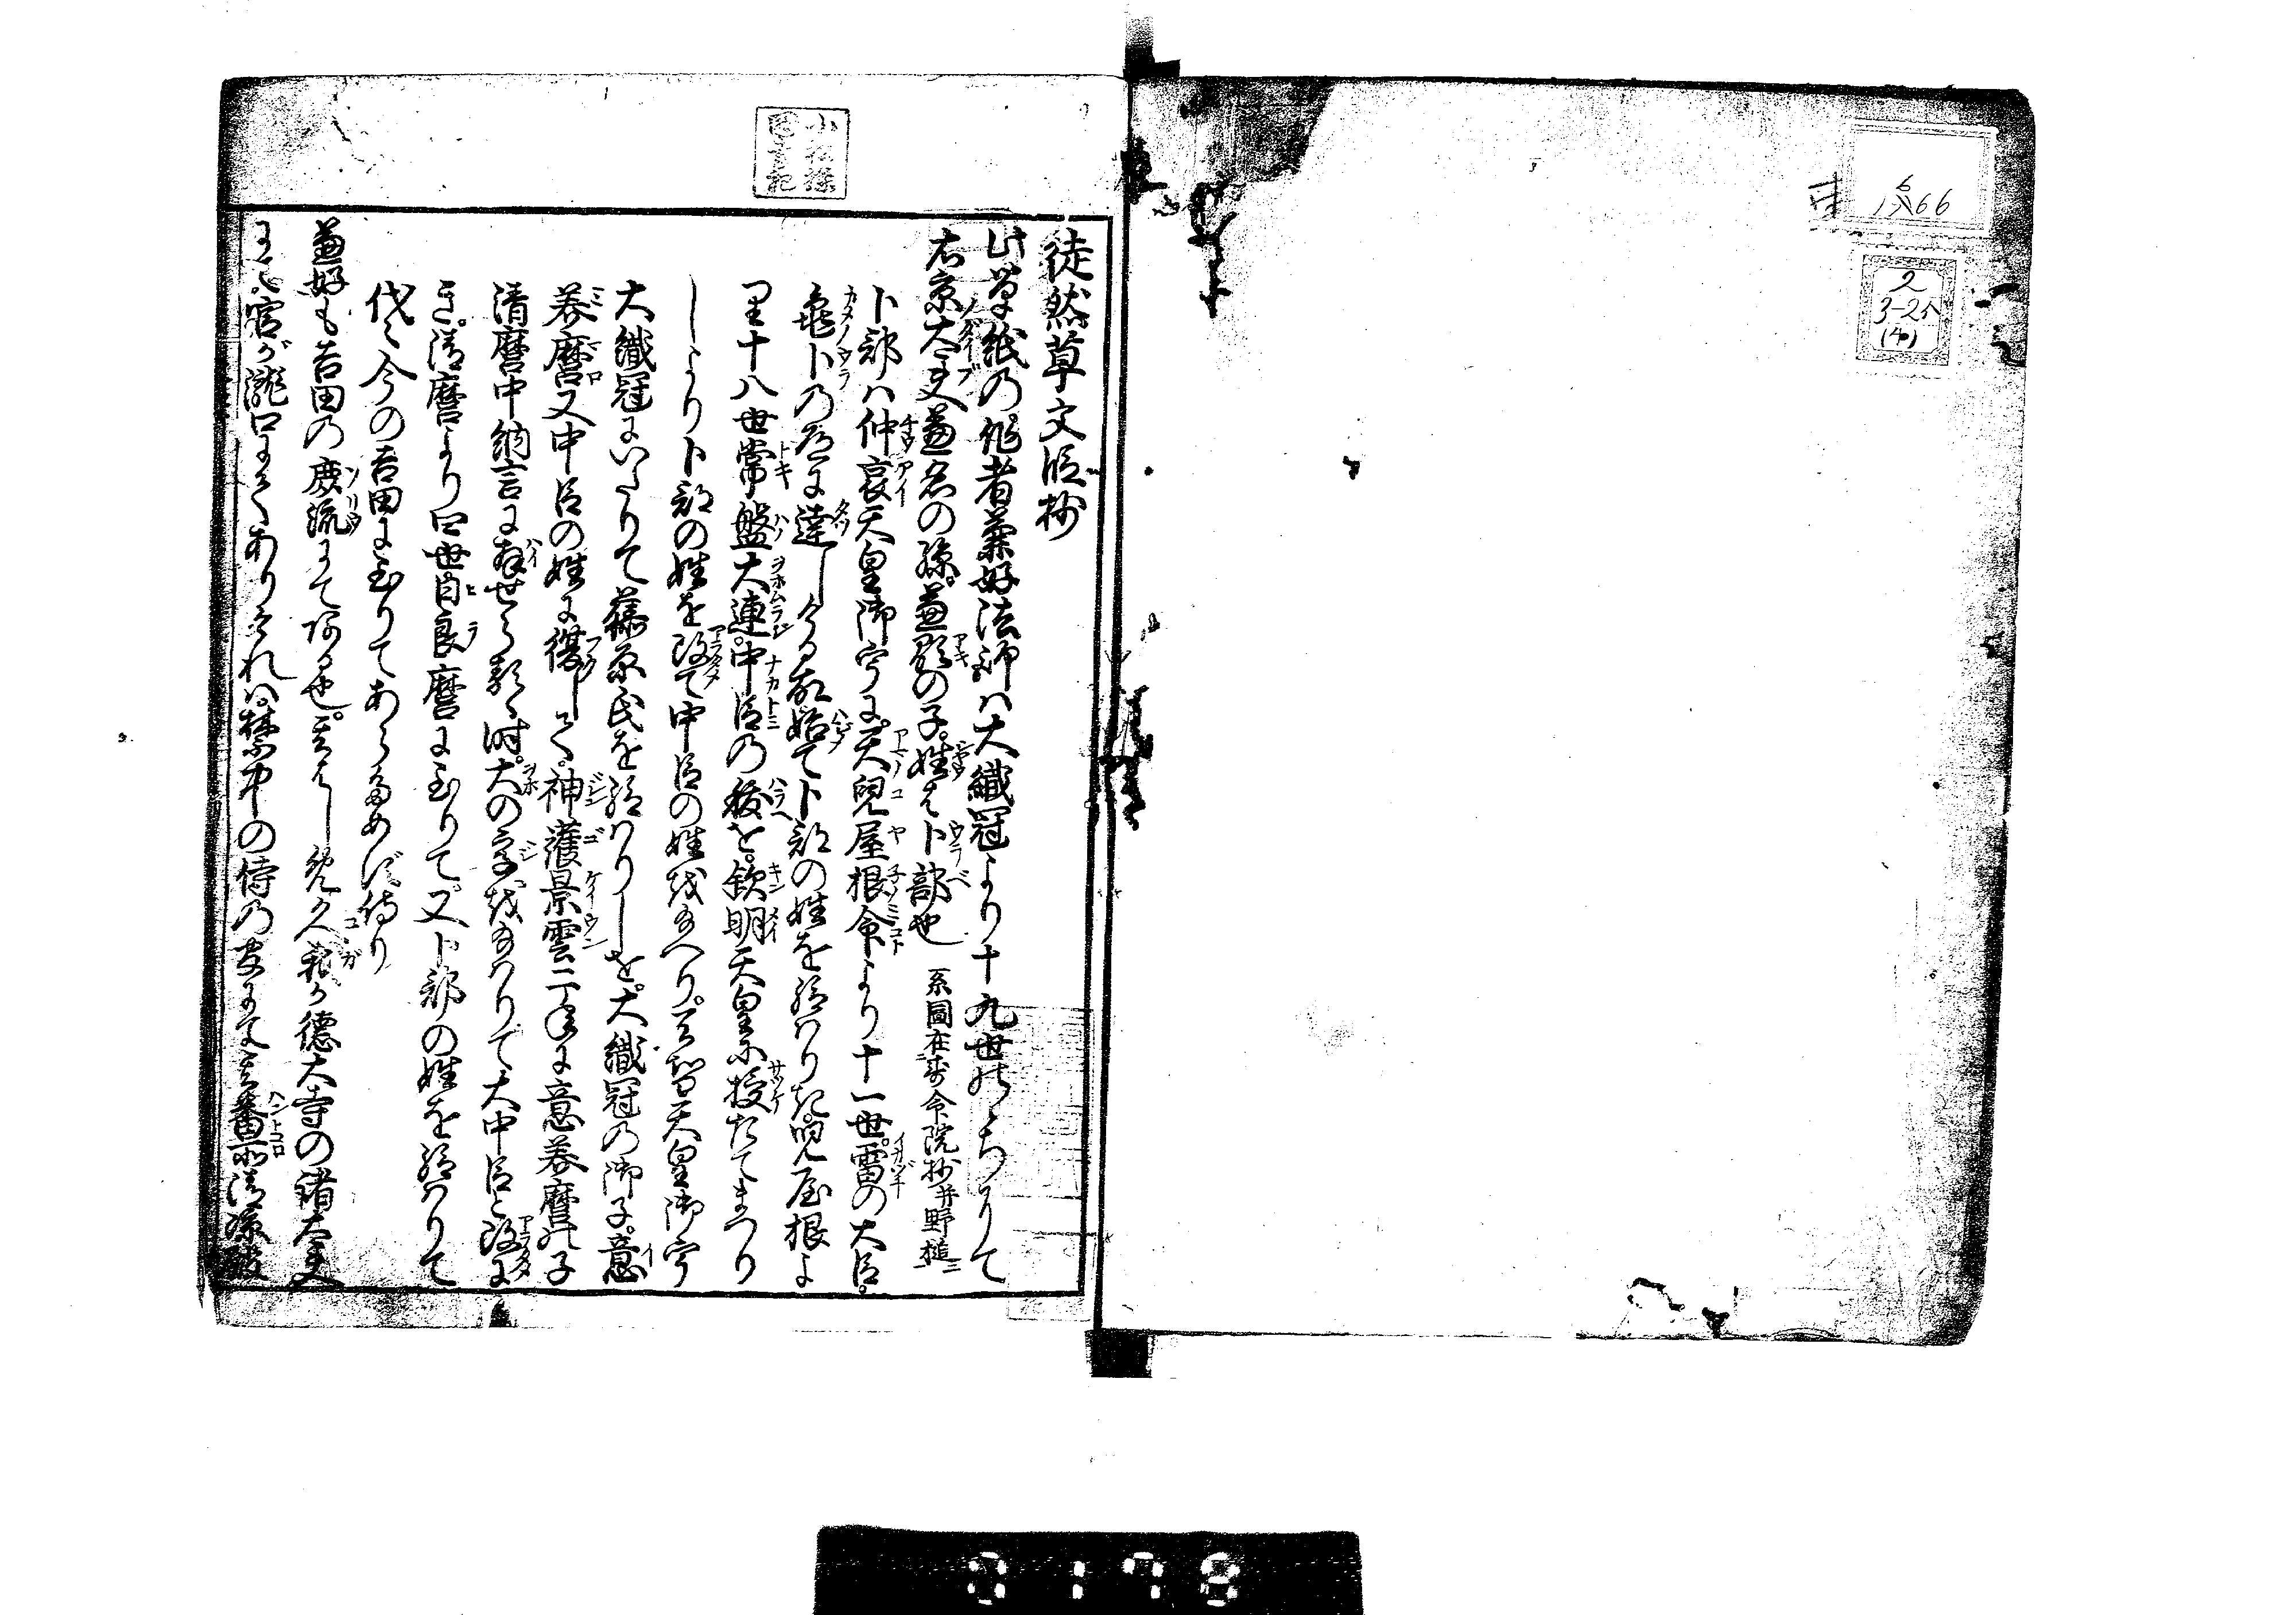 徒然草文段抄
此草紙の作者兼好法師ハ大織冠より十九世のちかりて
右京大夫兼名の孫。兼顕の子。姓は卜部也 系圖在壽命院抄并野槌ニ
卜部ハ仲哀天皇御宇に。天兒屋根命より十一世。雷の大臣。
亀卜の道に達しける故始て卜部の姓を給ハりき。児屋根よ
り十八世常盤大連。中臣の祓を。欽明天皇に授たてまつり
しより卜部の姓を改て中臣の姓をたまへり。天智天皇御宇
大織冠にいたりて藤原氏を給ハりしを。大織冠の御子。意
美麿又中臣の姓に復して。神護景雲二年に意美麿の子
清麿中納言に拝せられし時。大の字をたまハりて大中臣と改に
き。清麿より四世日良麿に至りて又卜部の姓を給ハりて
代々今の吉田に至りてあらためず侍り
兼好も吉田の庶流にてある也。其はじめ久我か徳大寺の諸大夫
にて官が瀧口にてありければ禁中の侍の番にて
番所清涼殿
2
3-25
(中)
1566
0178